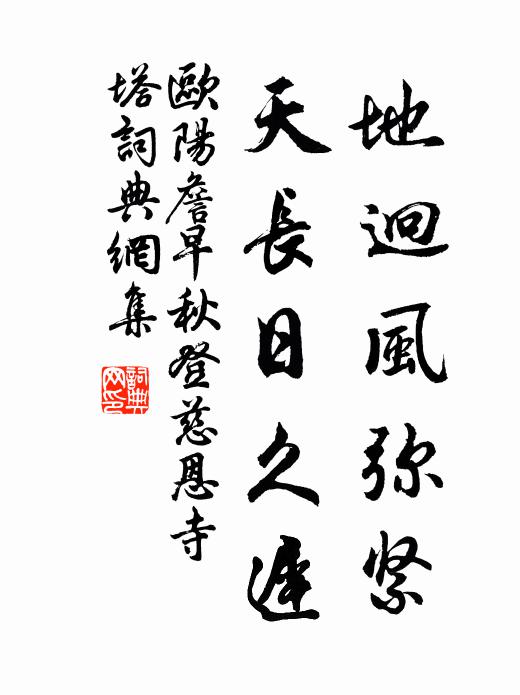 地迥風弥紧
天長日久遲
歐陽詹早秋登慈恩寺
塔詞典網集
詞典網印